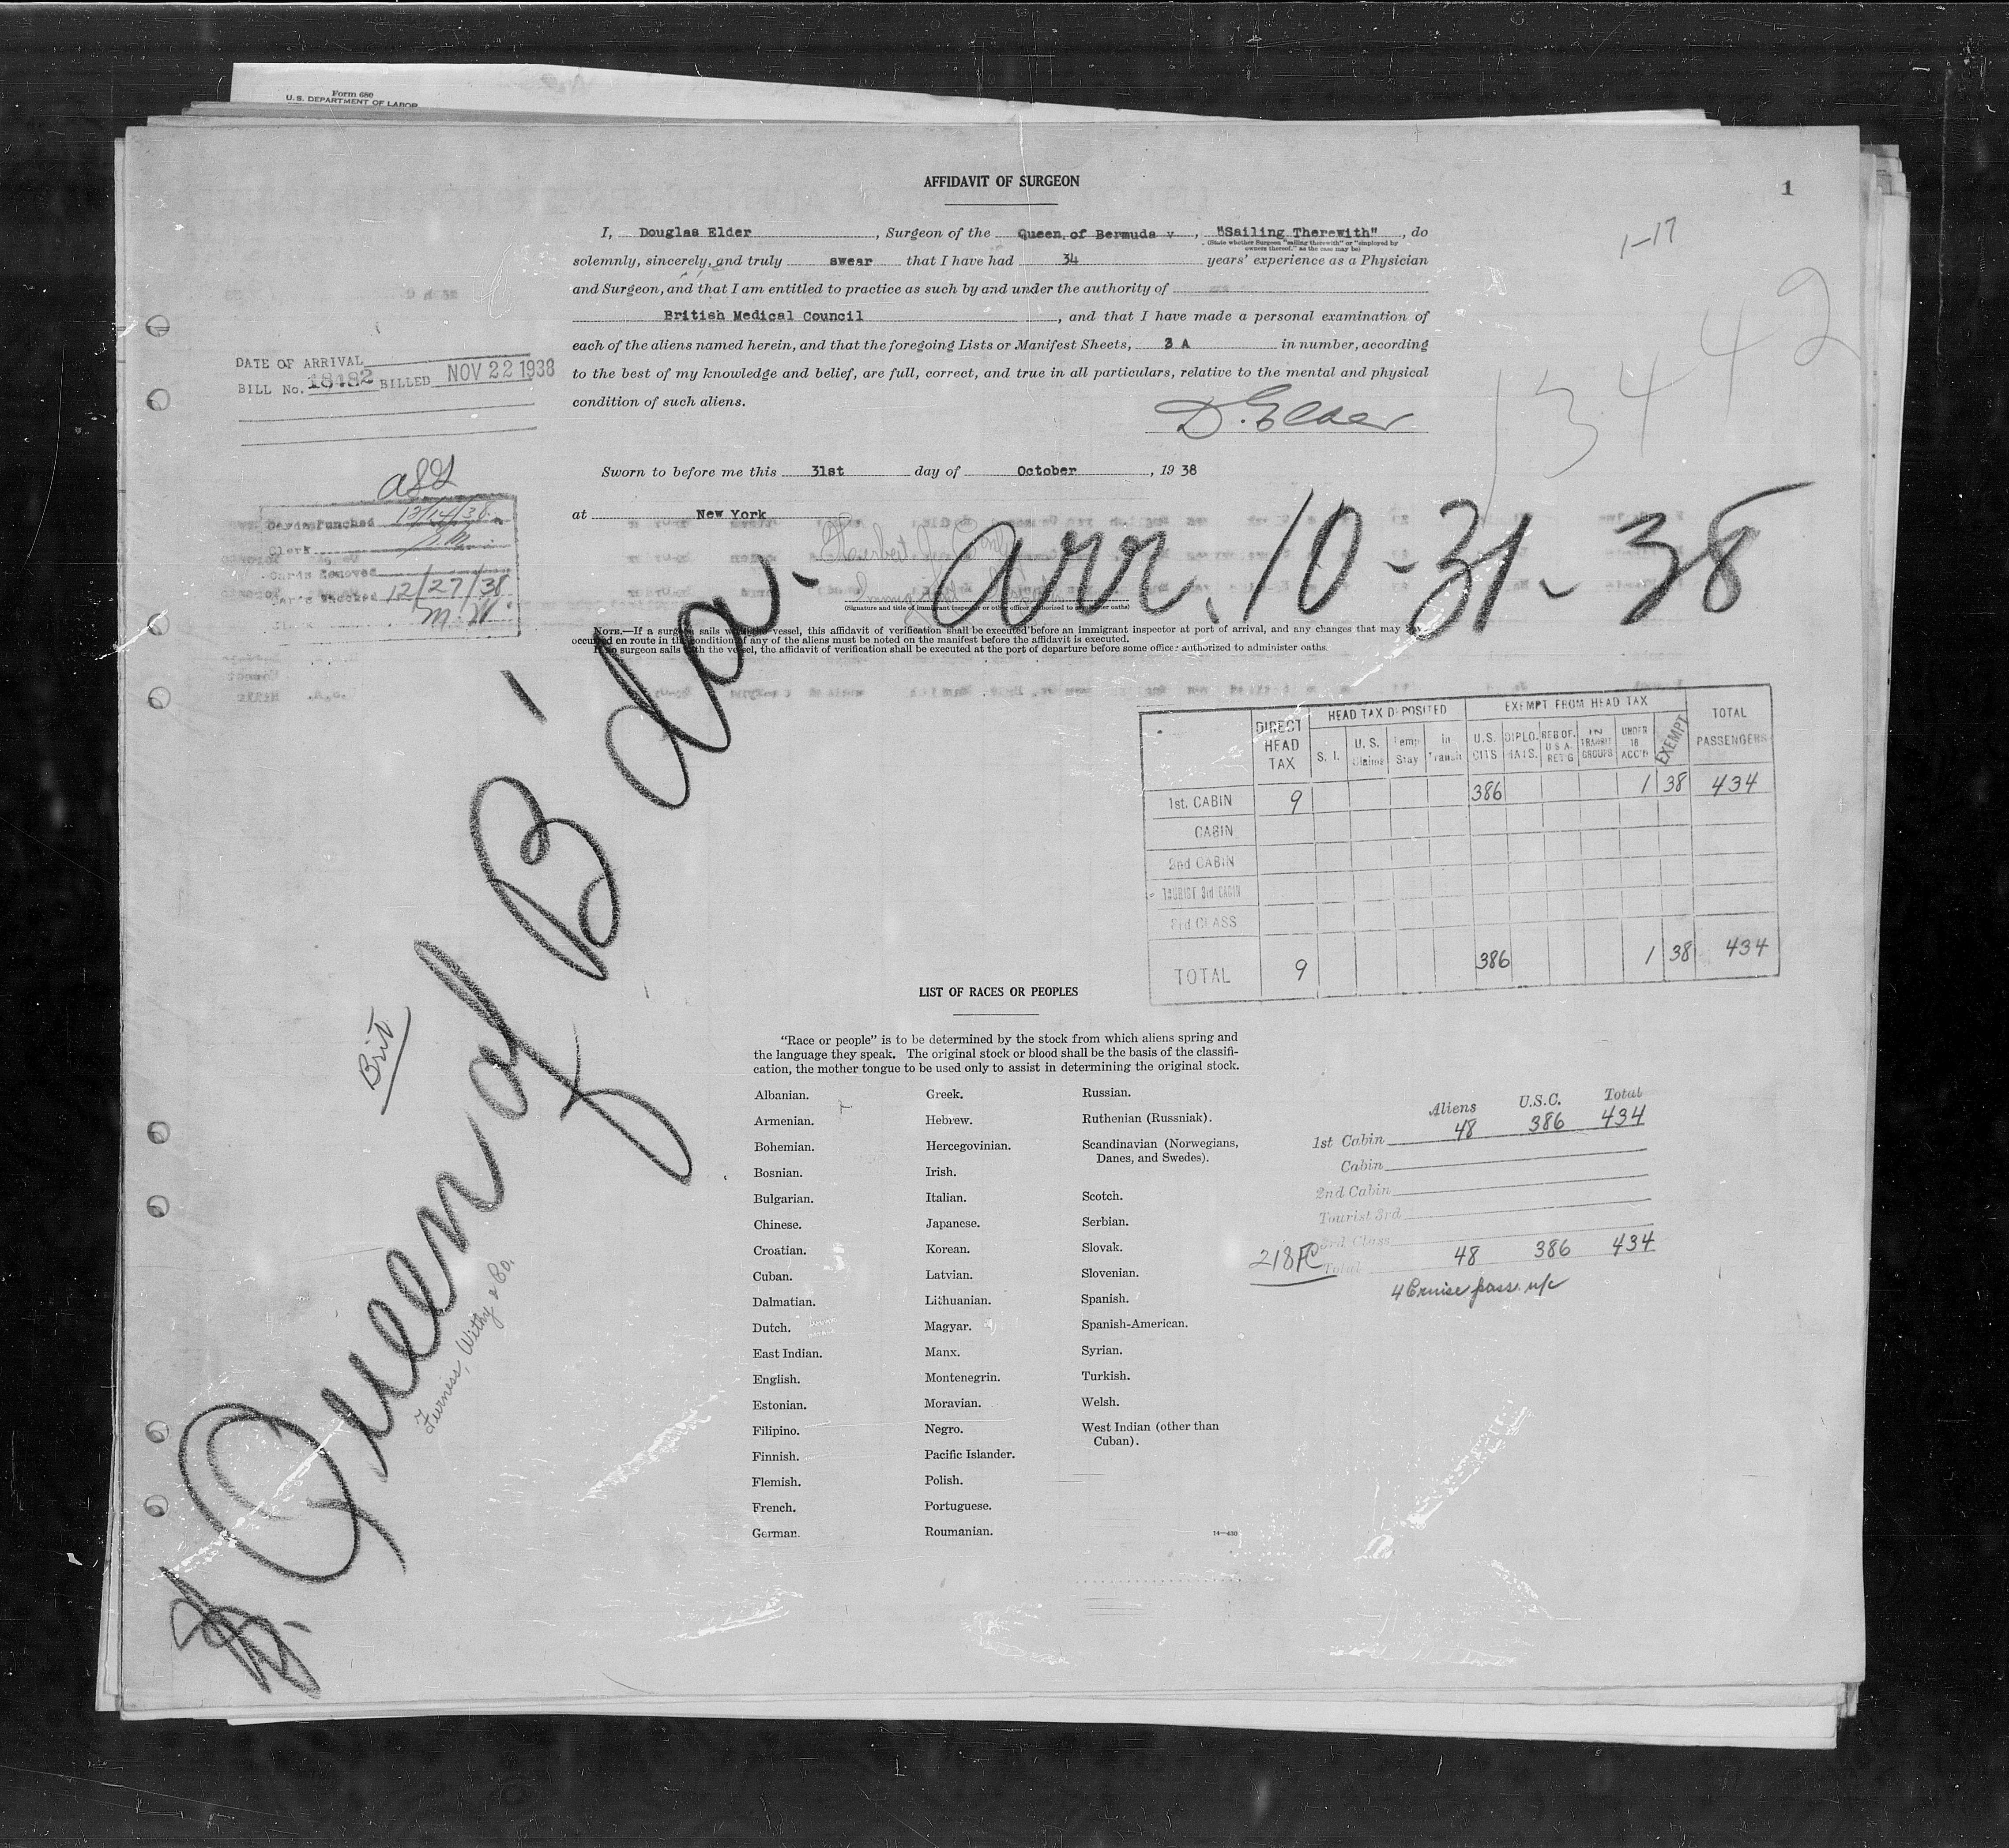 Form 680
U.S. DEPARTMENT OF LABOR
AFFIDAVIT OF SURGEON
1
1-17
13442
I, Douglas Elder, Surgeon of the Queen of Bermuda v, "Sailing Therewith", do
(State whether Surgeon "sailing therewith" or "employed by
owners thereof," as the case may be)
solemnly, sincerely, and truly swear that I have had 34 years' experience as a Physician
and Surgeon, and that I am entitled to practice as such by and under the authority of
British Medical Council, and that I have made a personal examination of
each of the aliens named herein, and that the foregoing Lists or Manifest Sheets, 3 A in number, according
to the best of my knowledge and belief, are full, correct, and true in all particulars, relative to the mental and physical
condition of such aliens.
D. Elder
DATE OF ARRIVAL
BILL No. 18482 BILLED NOV 22 1938
Sworn to before me this 31st day of October, 19 38
at New York
Herbert J.
(Signature and title of immigrant inspector or other officer authorized to administer oaths)
Cards Punched 12/14/38
Clerk
Cards Removed
Cards Checked 12/27/38
Clerk M.W.
NOTE.—If a surgeon sails with the vessel, this affidavit of verification shall be executed before an immigrant inspector at port of arrival, and any changes that may
occurred en route in the condition of any of the aliens must be noted on the manifest before the affidavit is executed.
If no surgeon sails with the vessel, the affidavit of verification shall be executed at the port of departure before some officer authorized to administer oaths.
Queen of B'da. - arr. 10-31-38
Brit
Furness, Withy & Co.
DIRECT HEAD TAX
HEAD TAX DEPOSITED
EXEMPT FROM HEAD TAX
TOTAL PASSENGERS
S. I.
U. S. Claims
Temp Stay
in Transit
U.S. CITS
DIPLO. MATS.
RES OF U S A RET'G
IN TRANSIT GROUPS
UNDER 16 ACC'D
EXEMPT
1st. CABIN 9 386 1 38 434
CABIN
2nd CABIN
TOURIST 3rd CABIN
3rd CLASS
TOTAL 9 386 1 38 434
LIST OF RACES OR PEOPLES
"Race or people" is to be determined by the stock from which aliens spring and
the language they speak. The original stock or blood shall be the basis of the classifi-
cation, the mother tongue to be used only to assist in determining the original stock.
Albanian.
Armenian.
Bohemian.
Bosnian.
Bulgarian.
Chinese.
Croatian.
Cuban.
Dalmatian.
Dutch.
East Indian.
English.
Estonian.
Filipino.
Finnish.
Flemish.
French.
German.
Greek.
Hebrew.
Hercegovinian.
Irish.
Italian.
Japanese.
Korean.
Latvian.
Lithuanian.
Magyar.
Manx.
Montenegrin.
Moravian.
Negro.
Pacific Islander.
Polish.
Portuguese.
Roumanian.
Russian.
Ruthenian (Russniak).
Scandinavian (Norwegians,
Danes, and Swedes).
Scotch.
Serbian.
Slovak.
Slovenian.
Spanish.
Spanish-American.
Syrian.
Turkish.
Welsh.
West Indian (other than
Cuban).
14—430
Aliens U.S.C. Total
1st Cabin 48 386 434
Cabin
2nd Cabin
Tourist 3rd
3rd Class
Total 48 386 434
218FC
4 Cruise pass. n/c